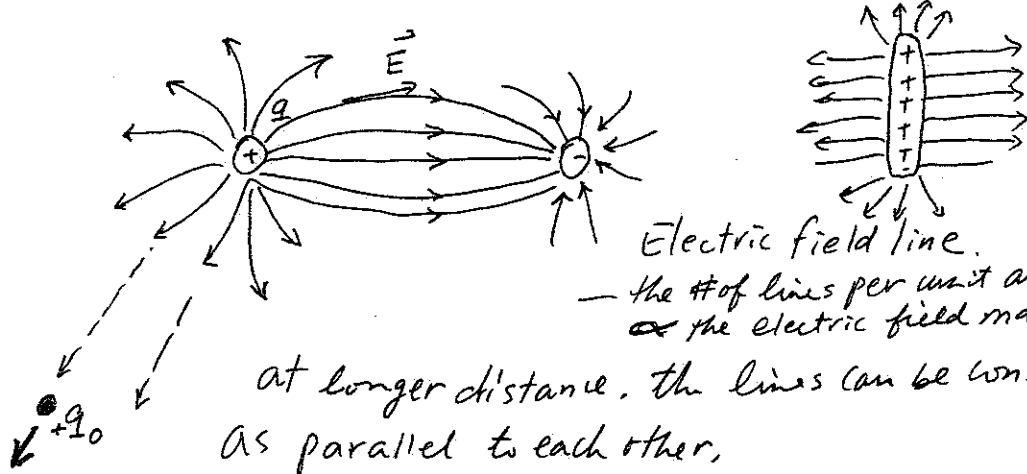 E
q
+
-
+
+
+
+
+
-
Electric field line.
— the # of lines per unit a
∝ the electric field ma
at longer distance. the lines can be con
as parallel to each other,
+q₀